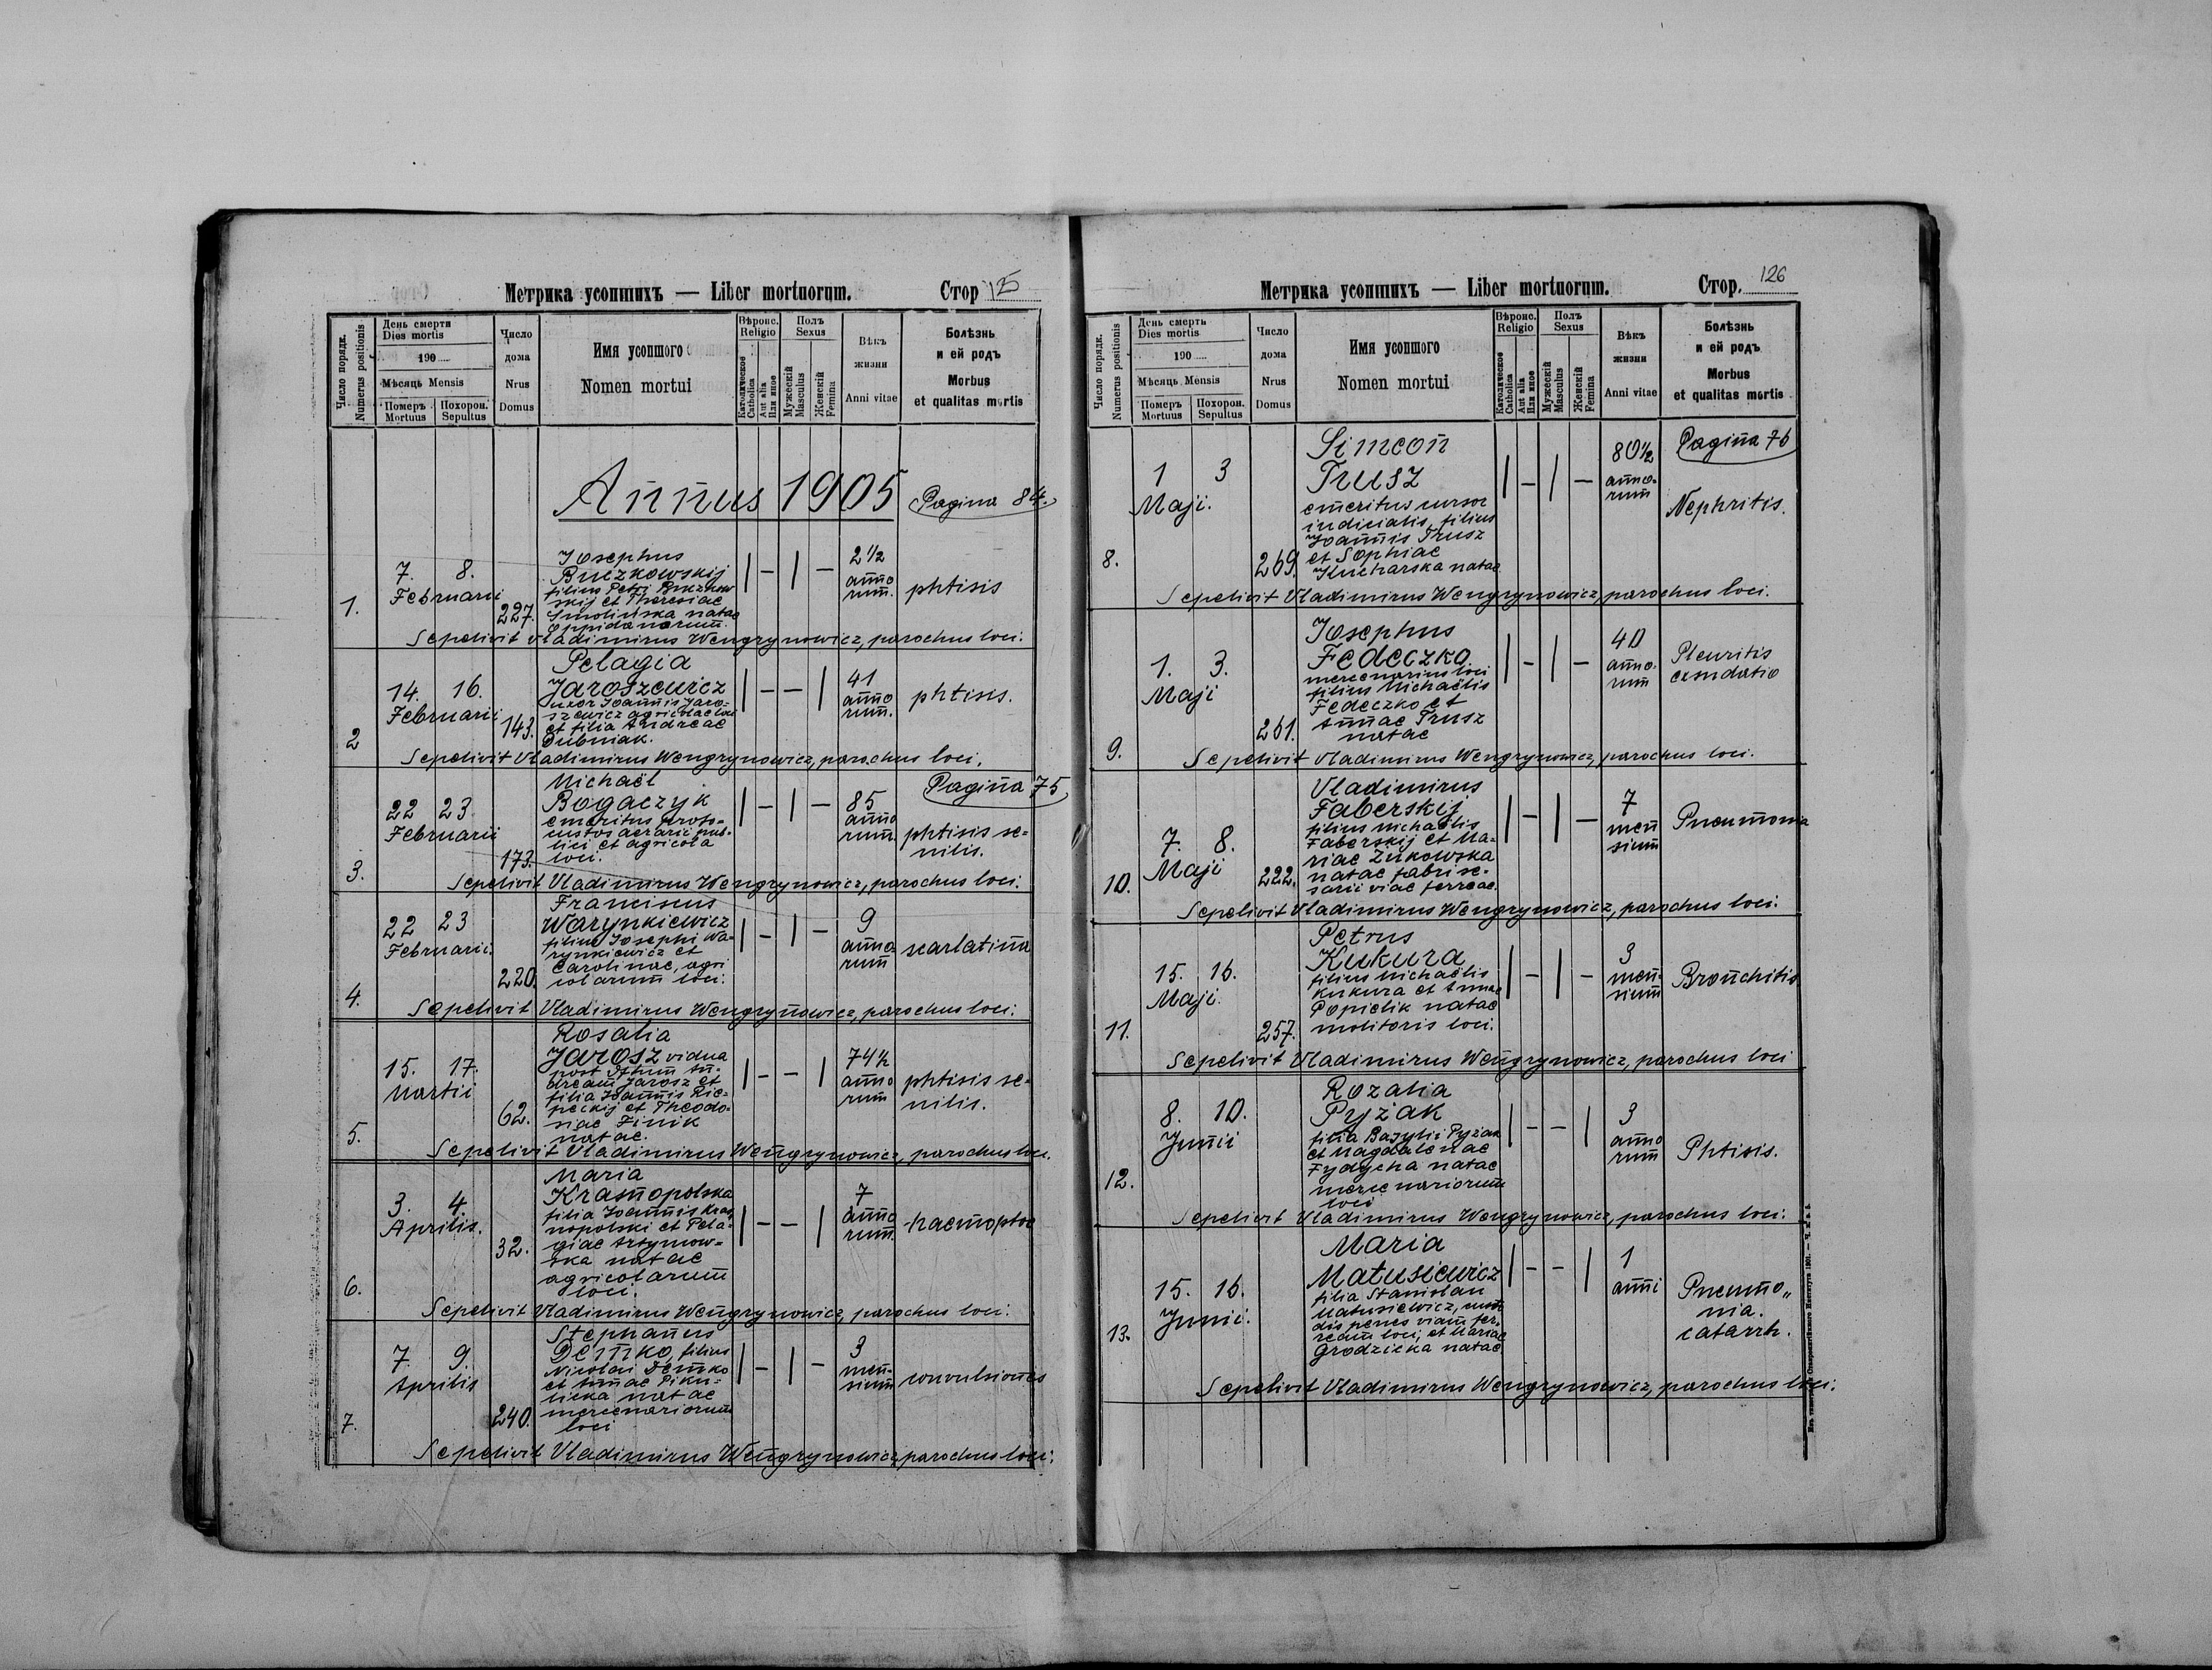 Метрика усопшихъ — Liber mortuorum. Стор 125
Число порядк. Numerus positionis
День смерти Dies mortis
190
Мѣсяць Mensis
Померъ Mortuus
Похорон. Sepultus
Число дома Nrus Domus
Имя усопшого
Nomen mortui
Вѣроис. Religio
Католическое Catholica
Aut alia Или иное
Полъ Sexus
Мужескій Masculus
Женскій Femina
Вѣкъ жизни
Anni vitae
Болѣзнь и ей родъ
Morbus et qualitas mortis
Annus 1905
Pagina 84.
1. 7. 8. Februarii 227.
Josephus
Buczkowskij
filius Petri Buczkow
skij et Theresiae
Smolinska natae
Oppidanorum.
| — | — 2 1/2 anno rum. phtisis
Sepelivit Vladimirus Wengrynowicz, parochus loci.
2 14. 16. Februarii 143.
Pelagia
Jaroszewicz
uxor Joannis Jaro-
szewicz agricolae loci
et filia Andreae
Dubniak.
| — — | 41 anno rum. phtisis.
Sepelivit Vladimirus Wengrynowicz, parochus loci.
3. 22 23 Februarii 173.
Michaël
Bogaczyk
emeritus proto-
custos aerarii pub-
lici et agricola
loci.
| — | — 85 anno rum
Pagina 75
phtisis se-
nilis.
Sepelivit Vladimirus Wengrynowicz, parochus loci.
4. 22 23 Februarii. 220.
Franciscus
Warynkiewicz
filius Josephi Wa-
rynkiewicz et
Carolinae, agri
colarum loci.
| — | — 9 anno- rum scarlatina
Sepelivit Vladimirus Wengrynowicz, parochus loci.
5. 15. 17. Martii 62.
Rosalia
Jarosz vidua
post dftum An-
dream Jarosz et
filia Joannis Rie-
peckij et Theodo-
siae Finik
natae.
| — — | 74 1/2 anno rum phtisis se-
nilis.
Sepelivit Vladimirus Wengrynowicz, parochus loci.
6. 3. 4. Aprilis. 32.
Maria
Krasnopolska
filia Joannis Kras
nopolski et Pela-
giae Artymow-
ska natae
agricolarum
loci.
| — — | 7 anno rum. haemoptoe
Sepelivit Vladimirus Wengrynowicz, parochus loci.
7. 7. 9. Aprilis 240.
Stephanus
Demko, filius
Nicolai Demko
et Annae Piku-
licka natae
mercenariorum
loci
| — | — 3 men- sium convulsiones
Sepelivit Vladimirus Wengrynowicz, parochus loci.
Метрика усопшихъ — Liber mortuorum. Стор. 126
Число порядк. Numerus positionis
День смерти Dies mortis
190
Мѣсяць Mensis
Померъ Mortuus
Похорон. Sepultus
Число дома Nrus Domus
Имя усопшого
Nomen mortui
Вѣроис. Religio
Католическое Catholica
Aut alia Или иное
Полъ Sexus
Мужескій Masculus
Женскій Femina
Вѣкъ жизни
Anni vitae
Болѣзнь и ей родъ
Morbus et qualitas mortis
8. 1 3 Maji. 269.
Simeon
Trusz
emeritus cursor
iudicialis, filius
Joannis Trusz
et Sophiae
Kucharska natae
| — | — 80 1/2 anno- rum
Pagina 76
Nephritis.
Sepelivit Vladimirus Wengrynowicz, parochus loci.
9. 1. 3. Maji 261.
Josephus
Fedeczko
mercenarius loci
filius Michaëlis
Fedeczko et
Annae Trusz
natae
| — | — 40 anno- rum Pleuritis
exsudatio
Sepelivit Vladimirus Wengrynowicz, parochus loci.
10. 7. 8. Maji 222.
Vladimirus
Faberskij
filius Michaëlis
Faberskij et Ma-
riae Żukowska
natae fabri se-
sarii viae ferreae.
| — | — 7 men sium Pneumonia
Sepelivit Vladimirus Wengrynowicz, parochus loci.
11. 15. 16. Maji. 257.
Petrus
Kukura
filius Michaëlis
Kukura et Annae
Popielik natae
molitoris loci.
| — | — 3 men- sium Bronchitis
Sepelivit Vladimirus Wengrynowicz, parochus loci
12. 8. 10. Junii
Rozalia
Pyżak
filia Basylii Pyżak
et Magdalenae
Fydycha natae
mercenariorum
loci
| — — | 3 anno rum Phtisis.
Sepelivit Vladimirus Wengrynowicz, parochus loci.
13. 15. 16. Junii.
Maria
Matusiewicz
filia Stanislau
Matusiewicz,
dis penes viam fer-
ream loci, et Mariae
Grodzicka natae
| — — | 1 anni Pneumo„
nia.
catarrh.
Sepelivit Vladimirus Wengrynowicz, parochus loci.